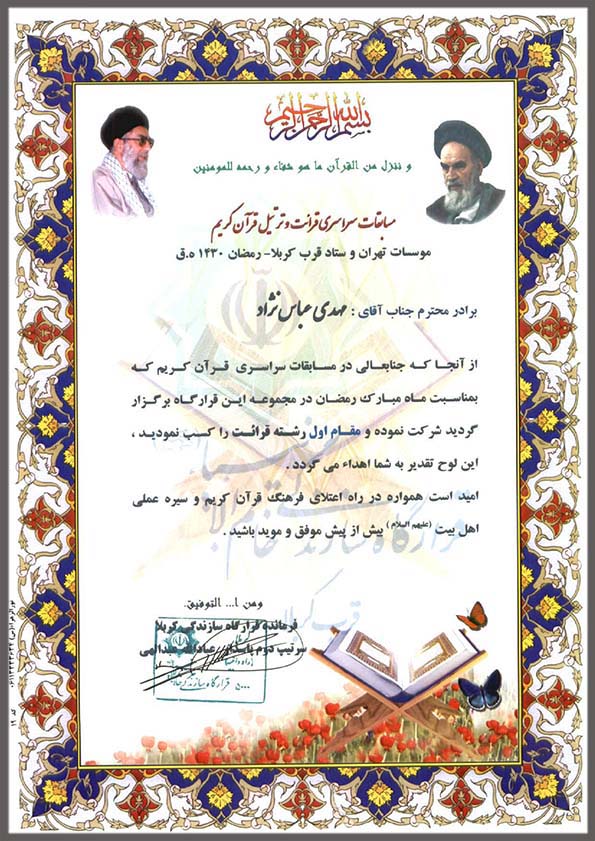 بسم الله الرحمن الرحیم
و ننزل من القرآن ما هو شفاء و رحمه للمومنین
مسابقات سراسری قرائت و ترتیل قرآن کریم
موسسات تهران و ستاد قرب کربلا- رمضان ۱۴۳۰ ه.ق
برادر محترم جناب آقای : مهدی عباس نژاد
از آنجا که جنابعالی در مسابقات سراسری قرآن کریم که
بمناسبت ماه مبارک رمضان در مجموعه این قرارگاه برگزار
گردید شرکت نموده و مقام اول رشته قرائت را کسب نمودید ،
این لوح تقدیر به شما اهداء می گردد .
امید است همواره در راه اعتلای فرهنگ قرآن کریم و سیره عملی
اهل بیت (علیهم السلام) بیش از پیش موفق و موید باشید .
ومن ا... التوفیق.
فرمانده قرارگاه سازندگی کربلا
سرتیپ دوم پاسدار عبادالله عبدالهی
قرارگاه سازندگی
قرب کربلا
کد ۱۹